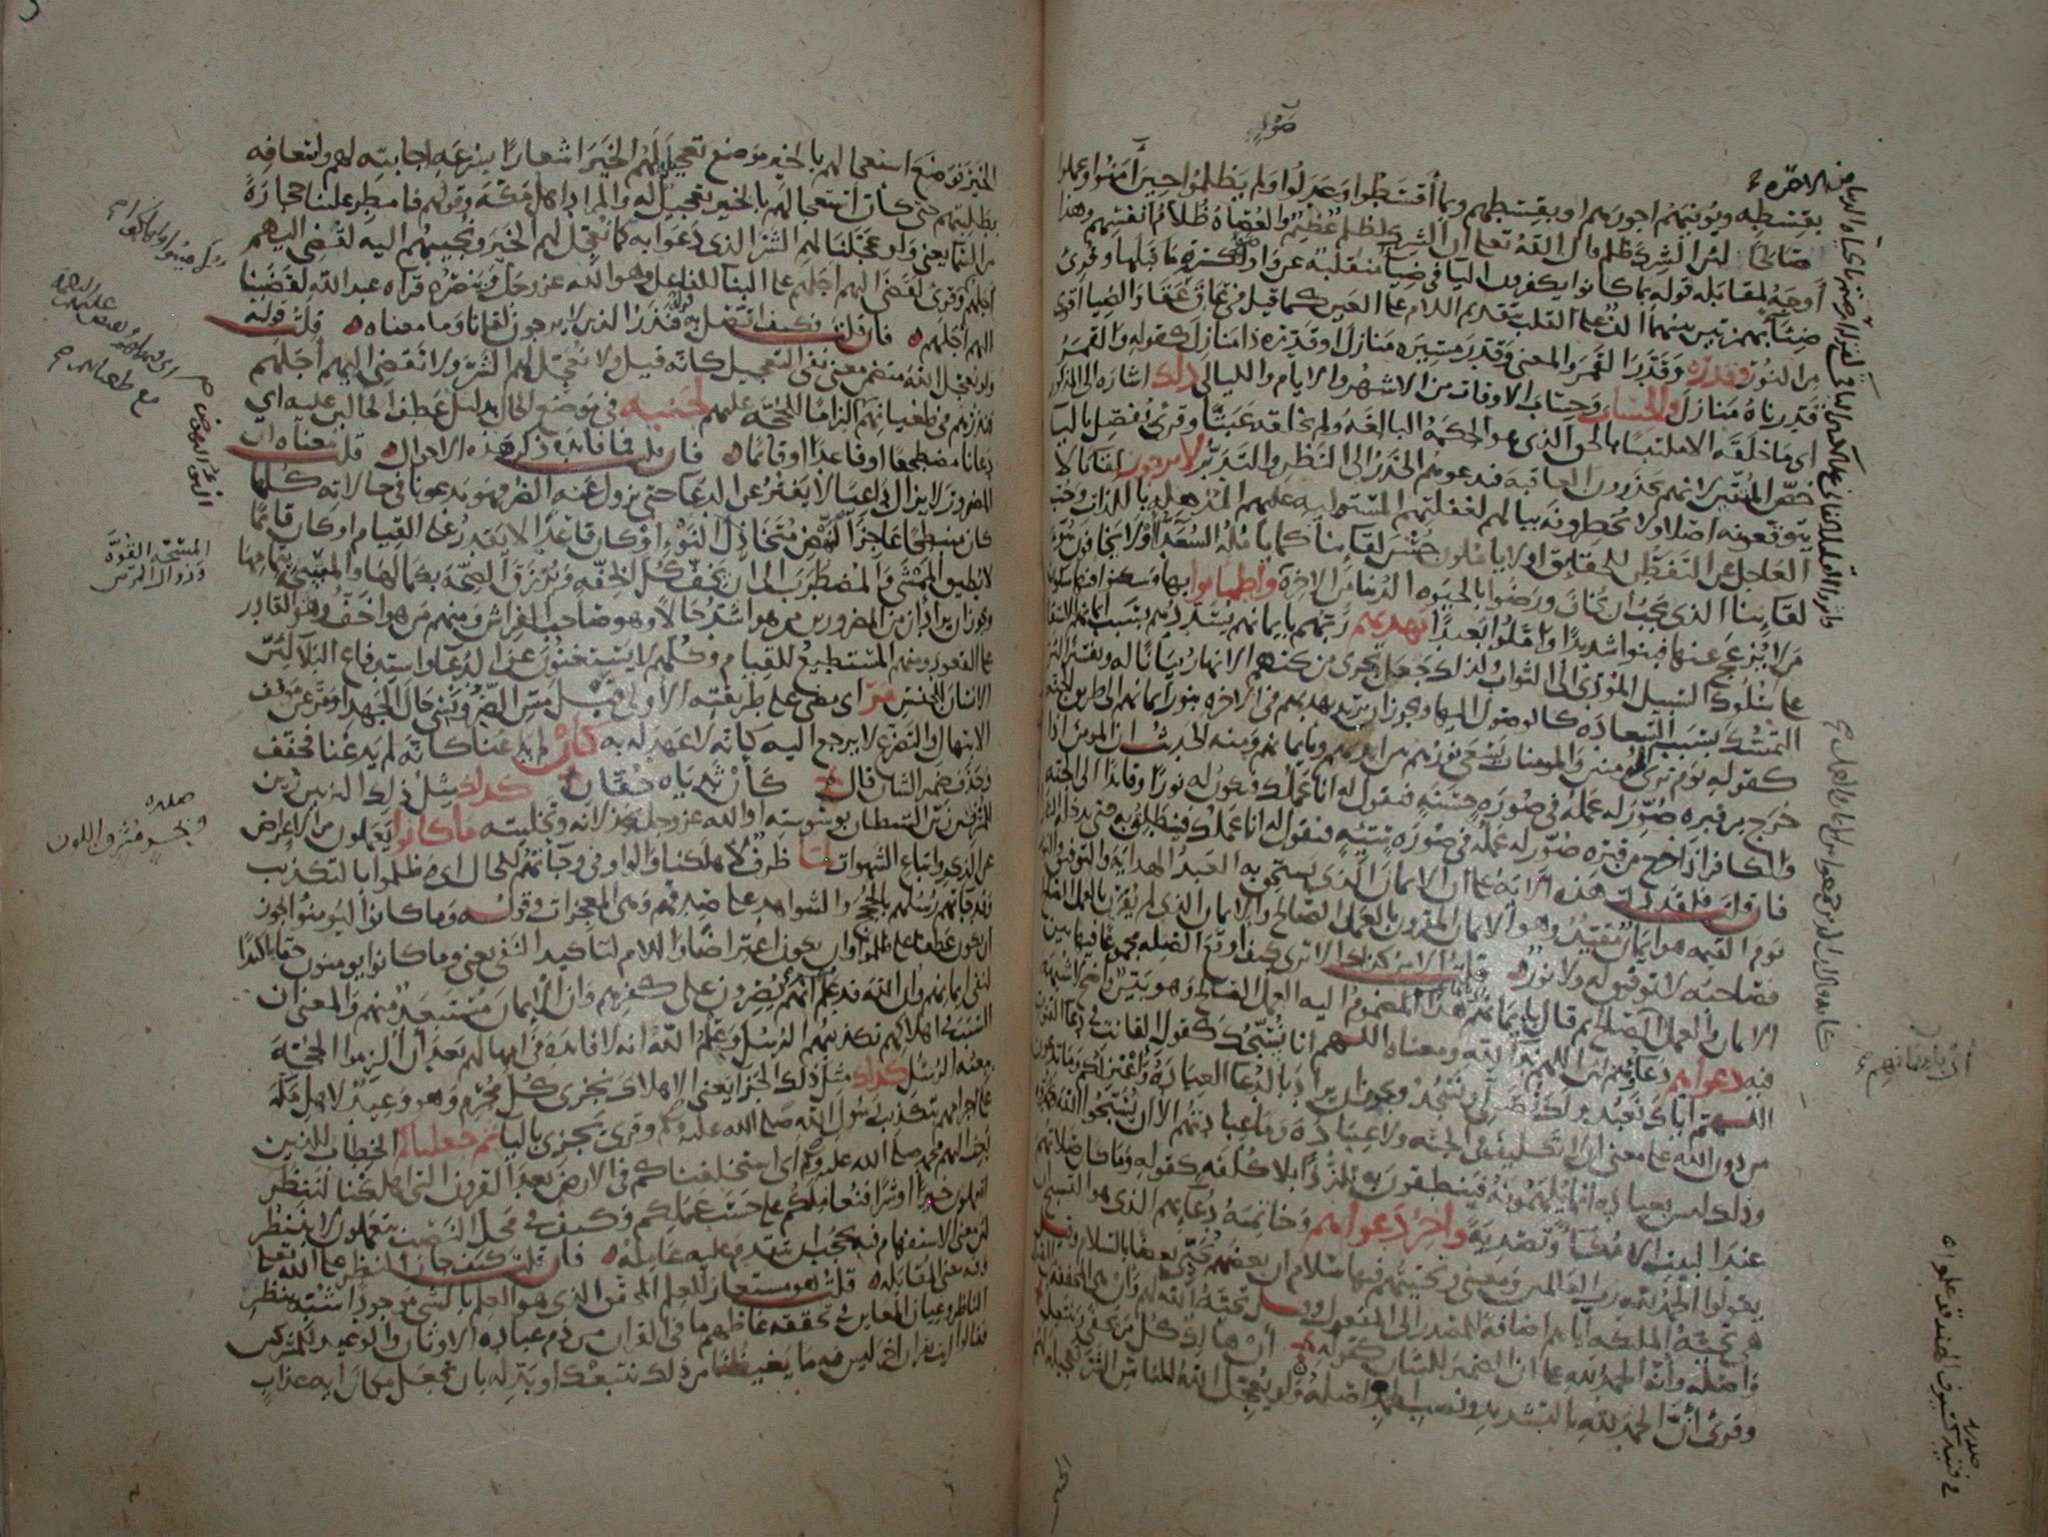 بقسطه ويوفيهم اجورهم او بقسطهم وبما أقسطوا وعدلوا ولم يظلموا حين آمنوا وعملوا
صالحًا لان الشرك ظلم قال الله تعالى ان الشرك لظلم عظيم والعصاة ظلام انفسهم وهذا
أوجه لمقابلة قوله بما كانوا يكفرون اليا في ضياء منقلبة عن واو لكسرة ما قبلها وقرئ
ضئاء بهمزتين بينهما الف على القلب بتقديم اللام على العين كما قيل في عاق عقا والضيا أقوى
من النور وقدره وقدر القمر والمعنى وقدر مسيره منازل او قدره ذا منازل كقوله والقمر
قدرناه منازل والحساب وحساب الاوقات من الاشهر والايام والليالي ذلك اشارة الى المذكور
اى ما خلقه الا ملتبسا بالحق الذى هو الحكمة البالغة ولم يخلقه عبثًا وقرئ يفصل باليا
خص المتقين لانهم يحذرون العاقبة فيدعوهم الحذر الى النظر والتدبر لا يرجون لقانا لا
يتوقعونه اصلا ولا يخطرونه ببالهم لغفلتهم المستولية عليهم المذهلة باللذات وحب
العاجل عن التفطن للحقايق او لا يأملون حسن لقاينا كما يامله السعداء او لا يخافون سوء
لقاينا الذى يجب ان يخاف ورضوا بالحيوة الدنيا من الاخرة واطمانوا بها وسكنوا فيها سكون
من لا يزعج عنها فبنوا شديدًا واملوا بعيدًا يهديهم ربهم بايمانهم يسددهم بسبب ايمانهم للاستقامة
على سلوك السبيل المؤدى الى الثواب لذلك جعل تجرى من تحتهم الانهار بيانًا له وتفسيرًا لان
التمسك بسبب السعادة كالوصول اليها ويجوز ان يريد يهديهم في الاخرة بنور ايمانهم الى طريق الجنة
كقوله يوم ترى المومنين والمومنات يسعى نورهم بين ايديهم وبايمانهم ومنه الحديث ان المومن اذا
خرج من قبره صور له عمله في صورة حسنة فيقول له انا عملك فيكون له نورًا وقايدًا الى الجنة
والكافر اذا خرج من قبره صور له عمله في صورة سيئة فيقول له انا عملك فينطلق به حتى يدخله النار
فان قلت فلقد دلت هذه الآية على ان الايمان الذي يستحق به العبد الهداية والتوفيق والنور
يوم القيمة هو ايمان مقيد وهو الايمان المقرون بالعمل الصالح والايمان الذي لم يقرن بالعمل الصالح
فصاحبه لا توفيق له ولا نور قلت الامر كذلك الا ترى كيف اوقع الصلة مجموعا فيها بين
الايمان والعمل الصالح ثم قال بايمانهم هذا المضموم اليه العمل الصالح وهو بين واضح لا شبهة
فيه دعواهم دعاؤهم لان اللهم نداء لله ومعناه اللهم انا نسبحك كقول القانت في دعا القنوت
اللهم اياك نعبد ولك نصلى ونسجد ويجوز ان يراد بالدعا العبادة واعتزلكم وما تدعون
من دون الله على معنى ان لا تكليف في الجنة ولا عبادة وما عبادتهم الا ان يسبحوا الله ويحمدوه
وذلك ليس بعبادة انما يلهمونه فينطقون به تلذذًا بلا كلفة كقوله وما كان صلاتهم
عند البيت الا مكاء وتصدية وآخر دعواهم وخاتمة دعائهم الذى هو التسبيح
يقولوا الحمد لله رب العالمين ومعنى وتحيتهم فيها سلام ان بعضهم يحيى بعضا بالسلام وقيل
هي تحية الملايكة اياهم اضافة للمصدر الى المفعول وقيل تحية الله لهم وأن هي المخففة من
واصله وأنه الحمد لله على ان الضمير للشان كقوله أن هالك كل من يحفى وينتعل
وقرئ أنّ الحمد لله بالتشديد ونصب الحمد اصله ولو يعجل الله للناس الشر تعجيله لهم
الخير فوضع استعجالهم بالخير موضع تعجيله لهم الخير اشعارًا بسرعة اجابته لهم واسعافه
بطلبتهم حتى كأن استعجالهم بالخير تعجيل له والمراد اهل مكة وقولهم فامطر علينا حجارة
من السما يعنى ولو عجلنا لهم الشر الذى دعوا به كما نعجل لهم الخير ونجيبهم اليه لقضى اليهم
اجلهم وقرئ لقضى اليهم اجلهم على البنا للفاعل وهو الله عز وجل وتنصره قراة عبد الله لقضينا
اليهم أجلهم فان قلت فكيف اتصل به قوله فنذر الذين لا يرجون لقانا وما معناه قلت قوله
ولو يعجل الله متضمن معنى نفى التعجيل كانه قيل ولا نعجل لهم الشر ولا نقضى اليهم اجلهم
فنذرهم في طغيانهم الزامًا للحجة عليهم لجنبه في موضع الحال بدليل عطف الحالين عليه اي
دعانا مضطجعا او قاعدًا او قائمًا فان قلت فما فائدة ذكر هذه الاحوال قلت معناه ان
المضرور لا يزال داعيًا لا يفتر عن الدعا حتى يزول عنه الضر فهو يدعونا في حالاته كلها
كان منبطحًا عاجز النهض متخاذل النوء او كان قاعدًا لا يقدر على القيام او كان قائمًا
لا يطيق المشى والمضطرب الى ان يخف كل الخفة ويرزق الصحة بكمالها والمسحة بتمامها
ويجوز ان يراد ان من المضرورين من هو اشد حالا وهو صاحب الفراش ومنهم من هو اخف وهو القادر
على القعود ومنهم المستطيع للقيام وكلهم لا يستغنون عن الدعا واستدفاع البلا لان
الانسان للجنس مرّ اى مضى على طريقته الاولى قبل مس الضر ونسى حال الجهد او مر عن موقف
الابتهال والتضرع لا يرجع اليه كانه لا عهد له به كأن لم يدعنا كانه لم يدعنا فخفف
وحذف ضمير الشان قال كأن ثدياه حقان كذلك مثل ذلك التزيين زين
للمسرفين زين الشيطان بوسوسته او الله عز وجل بخذلانه وتخليته ما كانوا يعملون من الاعراض
عن الذكر واتباع الشهوات لما ظرف لاهلكنا والواو في وجاءتهم للحال اى ظلموا بالتكذيب
وقد جاءتهم رسلهم بالحجج والشواهد على صدقهم وهي المعجزات وقوله وما كانوا ليومنوا يجوز
ان يكون عطفا على ظلموا وان يكون اعتراضًا واللام لتاكيد النفى يعنى وما كانوا يومنون حقا تاكيدًا
لنفى ايمانهم وان الله قد علم انهم يصرون على كفرهم وان الايمان مستبعد منهم والمعنى ان
السبب في اهلاكهم تكذيبهم الرسل وعلم الله انه لا فايدة في امهالهم بعد ان الزموا الحجة
ببعثه الرسل كذلك مثل ذلك الجزا يعنى الاهلاك نجزى كل مجرم وهو وعيد لاهل مكة
على اجرامهم بتكذيب رسول الله صلى الله عليه وسلم وقرئ يجزى باليا ثم جعلناكم الخطاب للذين
بعث اليهم محمد صلى الله عليه وسلم اى استخلفناكم في الارض بعد القرون التي اهلكنا لننظر
اتعملون خيرًا او شرًا فنعاملكم على حسب عملكم وكيف في محل النصب بتعملون لا بننظر
لان معنى الاستفهام فيه يحجب ان يتقدم عليه عامله فان قلت كيف جاز النظر على الله تعالى
وفيه معنى المقابلة قلت هو مستعار للعلم المحقق الذى هو العلم بالشى موجودا شبه بنظر
الناظر وعيان المعاين في تحققه غاظهم ما في القران من ذم عبادة الاوثان والوعيد للمشركين
فقالوا ايت بقران اخر ليس فيه ما يغيظنا من ذلك نتبعك او بدله بان تجعل مكان اية عذاب
المسحة القوة
وزوال المرض
صدره
ونحر مشرق اللون
اى بايمانهم
صدره
في فتية كسيوف الهند قد علموا